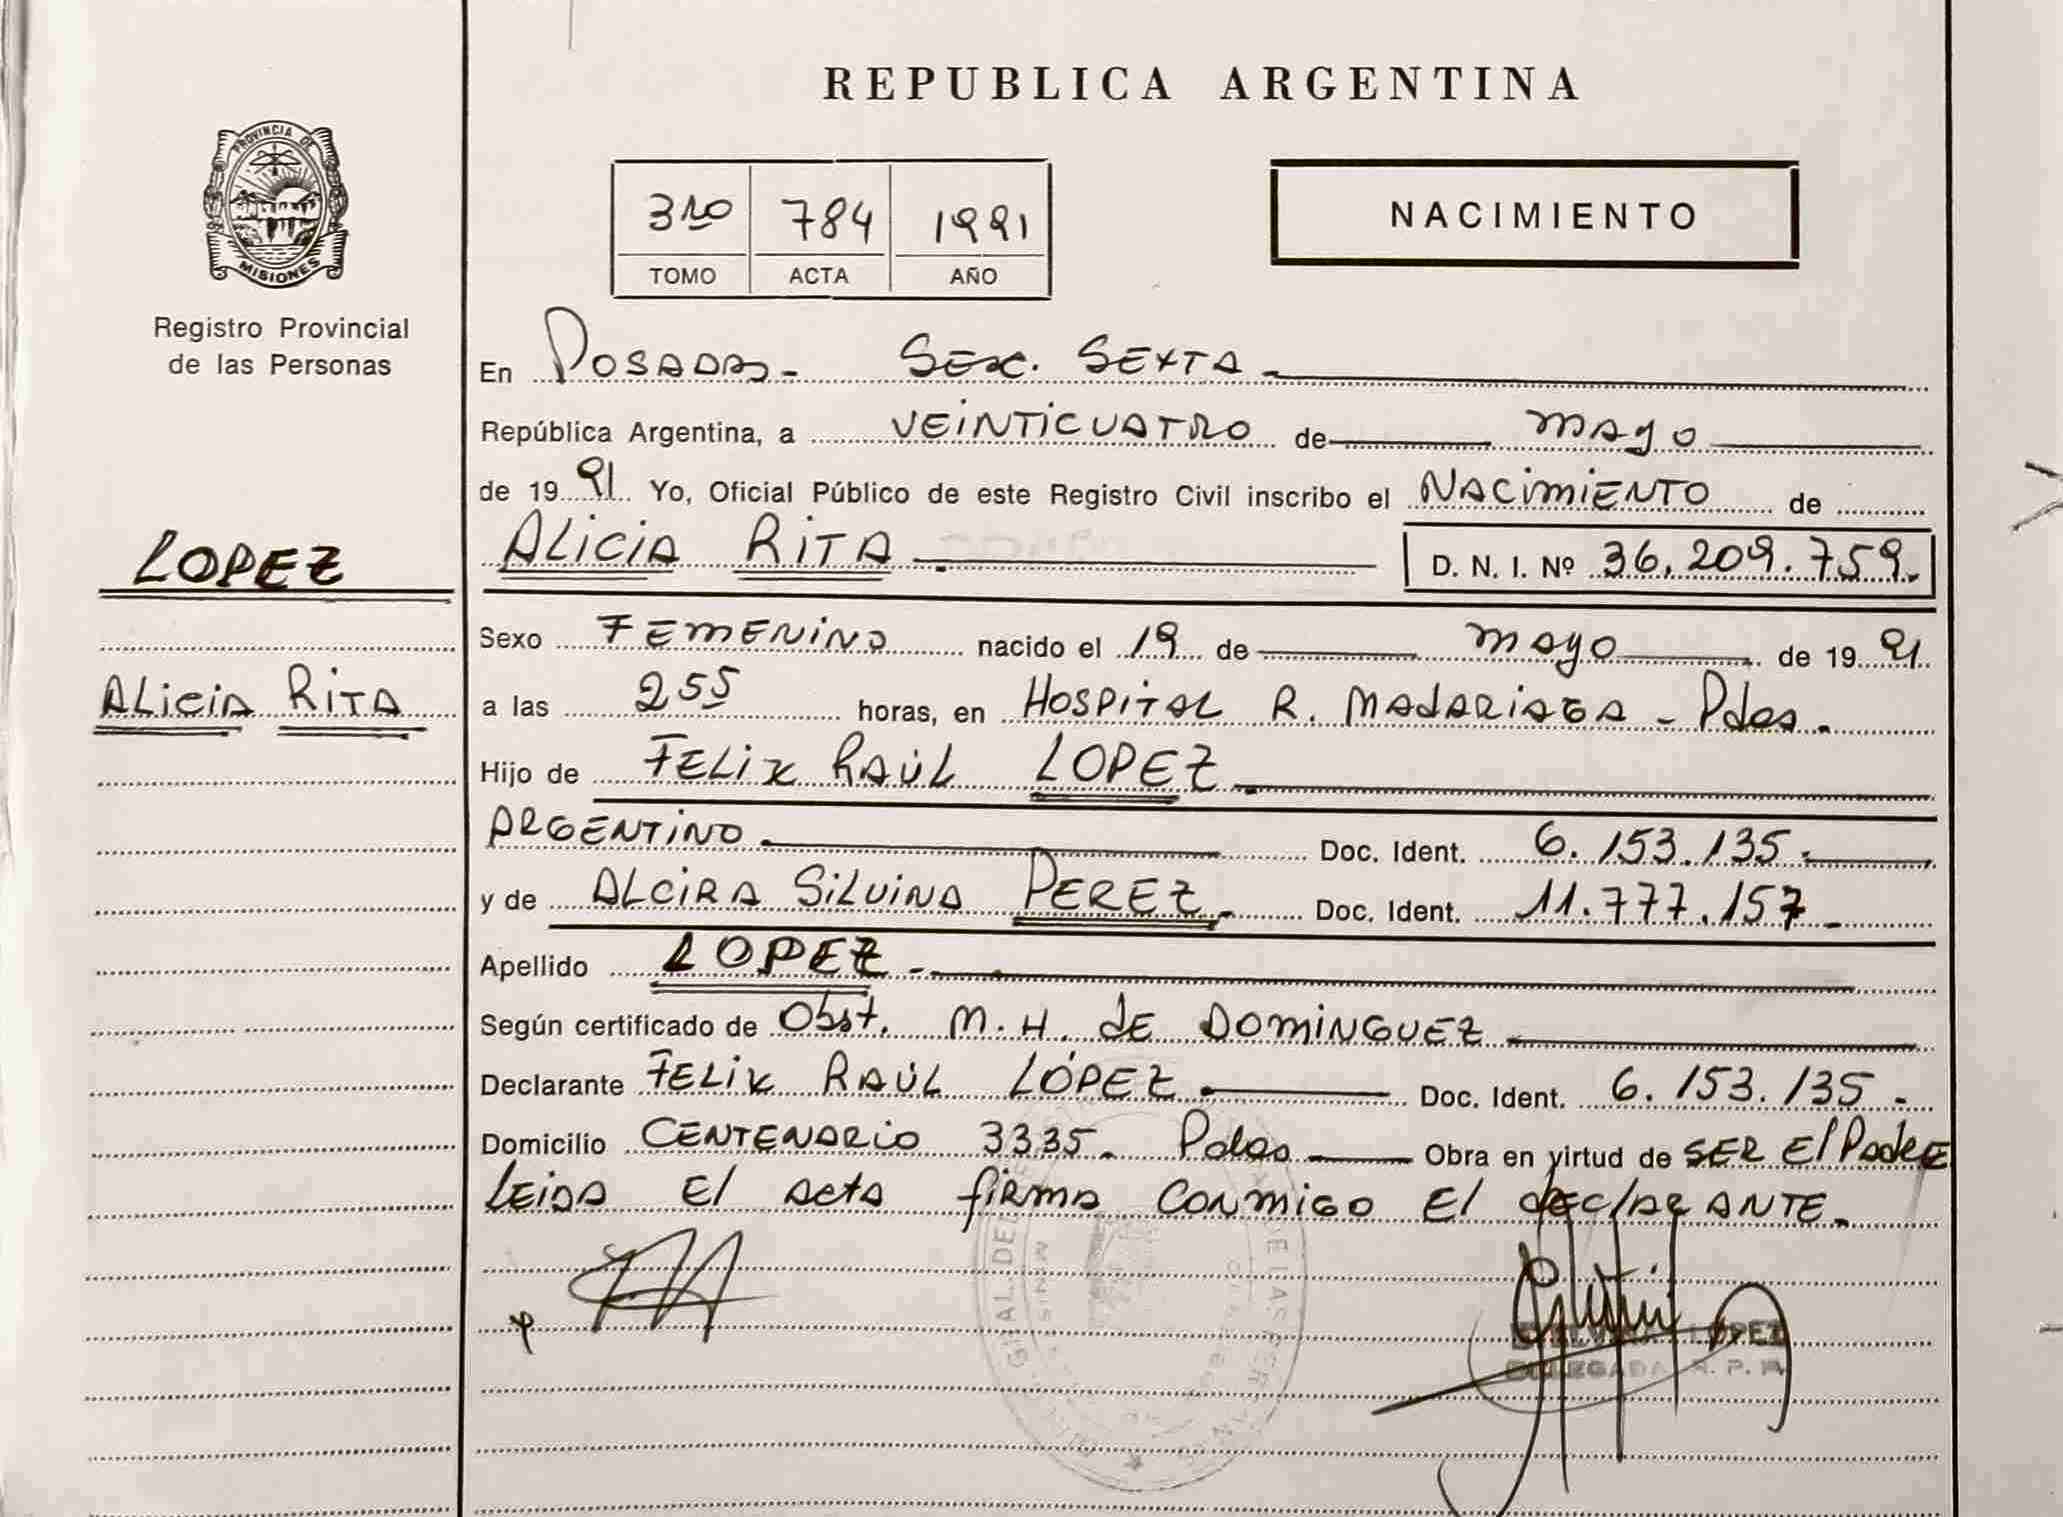 REPUBLICA ARGENTINA
PROVINCIA DE
MISIONES
Registro Provincial
de las Personas
3ro 784 1991
TOMO ACTA AÑO
NACIMIENTO
En POSADAS - SEC. SEXTA -
República Argentina, a VEINTICUATRO de mayo
de 1991 Yo, Oficial Público de este Registro Civil inscribo el NACIMIENTO de
LOPEZ
ALICIA RITA
ALICIA RITA. D. N. I. Nº 36.209.759.
Sexo FEMENINO nacido el 19 de mayo de 1991
a las 2 55 horas, en HOSPITAL R. MADARIAGA - Pdas.
Hijo de FELIX RAÚL LOPEZ.
ARGENTINO. Doc. Ident. 6.153.135.
y de ALCIRA SILVINA PEREZ. Doc. Ident. 11.777.157.
Apellido LOPEZ.
Según certificado de Obst. M. H. de DOMINGUEZ
Declarante FELIX RAÚL LÓPEZ. Doc. Ident. 6.153.135.
Domicilio CENTENARIO 3335. Pdas Obra en virtud de SER El Padre
LEIDA El acta firma CONMIGO El declarANTE.
LOPEZ
DELEGADA R. P. P.